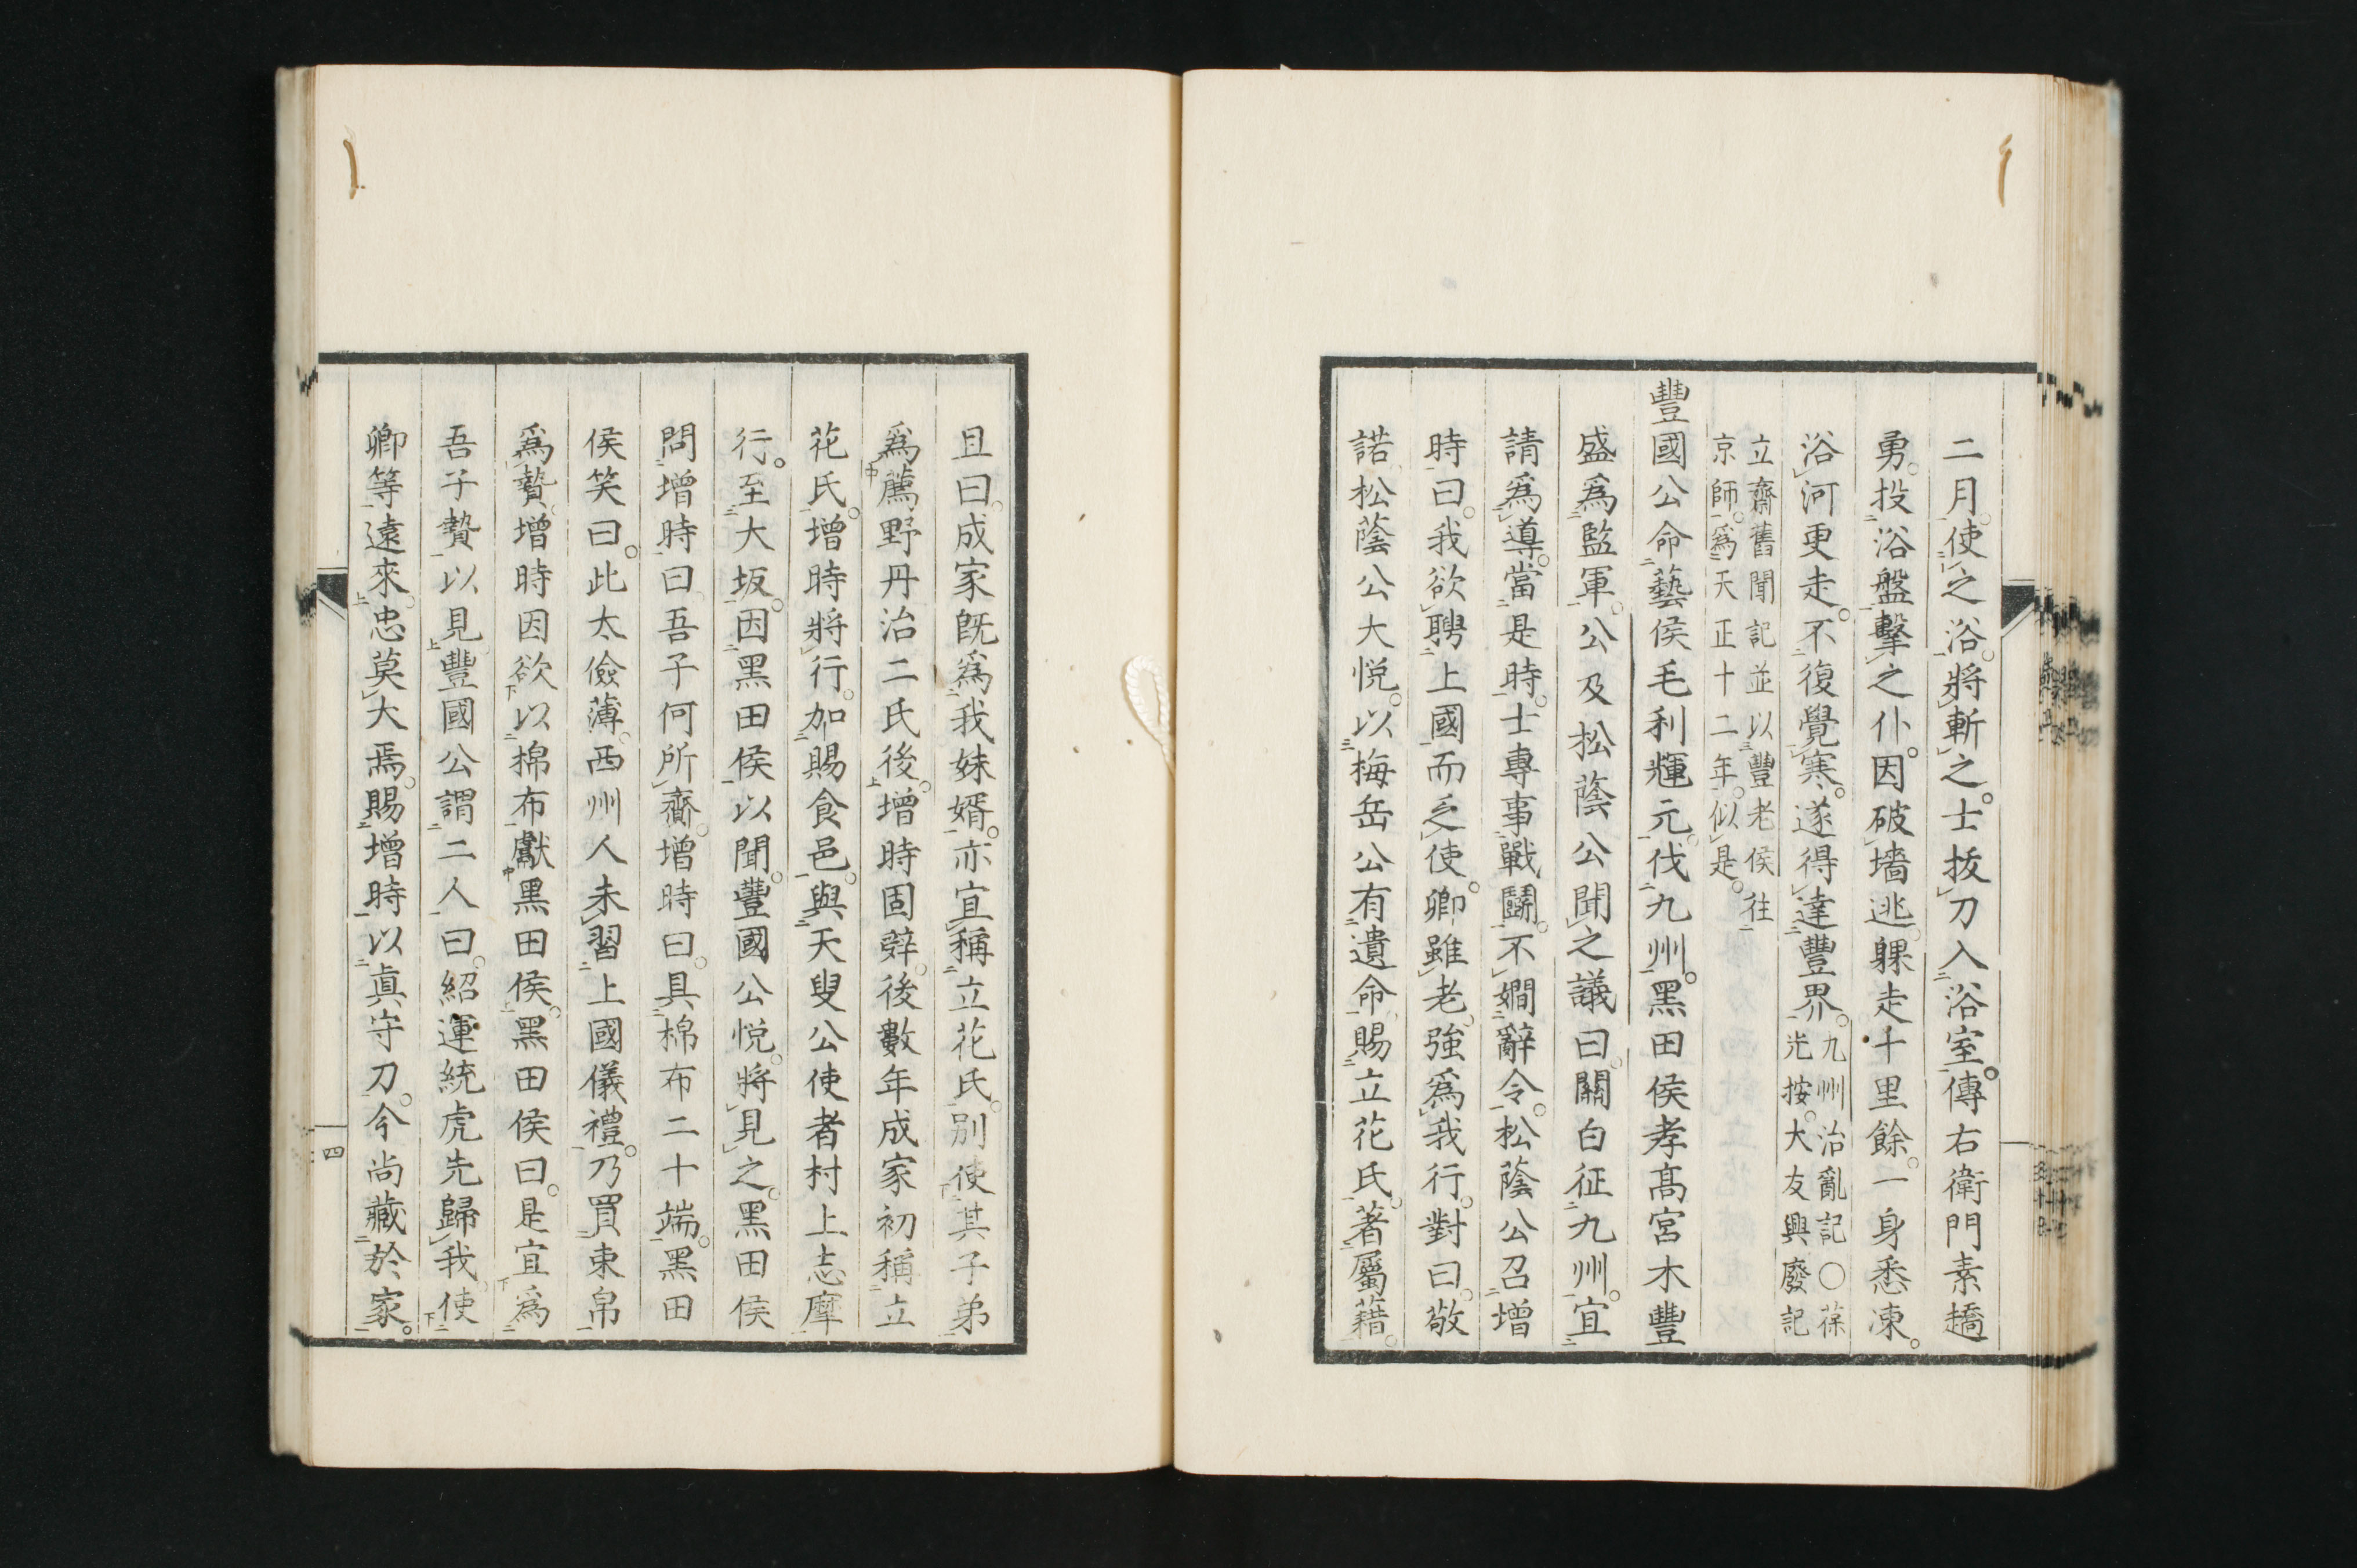 二月。使之浴。將斬之。士拔刀入浴室。傳右衛門素趫
勇。投浴盤擊之仆。因破墻逃。躶走千里餘。一身悉凍。
浴河更走。不復覺寒。遂得達豐界。九州治亂記〇葆
光按。大友興廢記
立齋舊聞記並以豐老侯往
京師。爲天正十二年。似是。
豐國公命藝侯毛利輝元。伐九州。黑田侯孝高宮木豐
盛爲監軍。公及松蔭公聞之議曰。關白征九州。宜
請爲導。當是時。士專事戰鬪。不嫺辭令。松蔭公召增
時曰。我欲聘上國而乏使。卿雖老。強爲我行。對曰。敬
諾。松蔭公大悅。以梅岳公有遺命。賜立花氏。著屬籍。
且曰。成家既爲我妹婿。亦宜稱立花氏。別使其子弟
爲薦野丹治二氏後。增時固辭。後數年成家初稱立
花氏。增時將行。加賜食邑。與天叟公使者村上志摩
行。至大坂。因黑田侯以聞。豐國公悅。將見之。黑田侯
問增時曰。吾子何所齎。增時曰。具棉布二十端。黑田
侯笑曰。此太儉薄。西州人未習上國儀禮。乃買束帛
爲贄。增時因欲以棉布獻黑田侯。黑田侯曰。是宜爲
吾子贄以見。豐國公謂二人曰。紹運統虎先歸我。使
卿等遠來。忠莫大焉。賜增時以眞守刀。今尚藏於家。
四